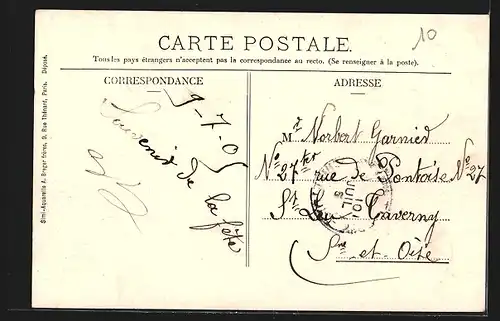 10
CARTE POSTALE.
Tous les pays étrangers n'acceptent pas la correspondance au recto. (Se renseigner à la poste).
CORRESPONDANCE
9-7-05
Souvenir de la fête
ADRESSE
Md Norbert Garnier
No 27 ter rue de Pontoise No 27
St Leu Taverny
Sne et Oise
10
JUIL
Simi-Aquarelle A. Breger frères, 9, Rue Thénard, Paris. Déposé.